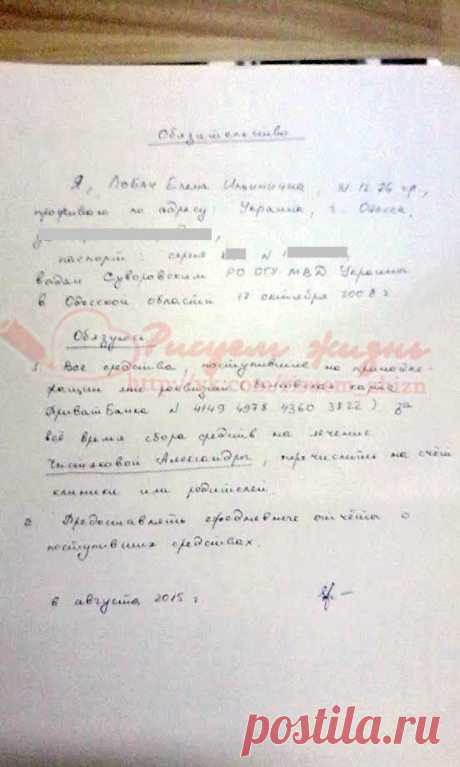 Обязательство
Я, Лобач Елена Ильинична, 12.76 г.р.,
проживаю по адресу: Украина, г. Одесса,
паспорт: серия N
выдан Суворовским РО ОГУ МВД Украины
в Одесской области 17 октября 2008 г
Обязуюсь:
Рисуем жизнь
1. Все средства поступившие на принадле-
жащии мне реквизит карта
ПриватБанка N 4149 4978 4360 3822) за
всё время сбора средств на лечение
Чистяковой Александры, перечислить на счёт
клиники или родителей.
2. Предоставлять ежедневные отчёты о
поступивших средствах.
6 августа 2015 г.
postila.ru